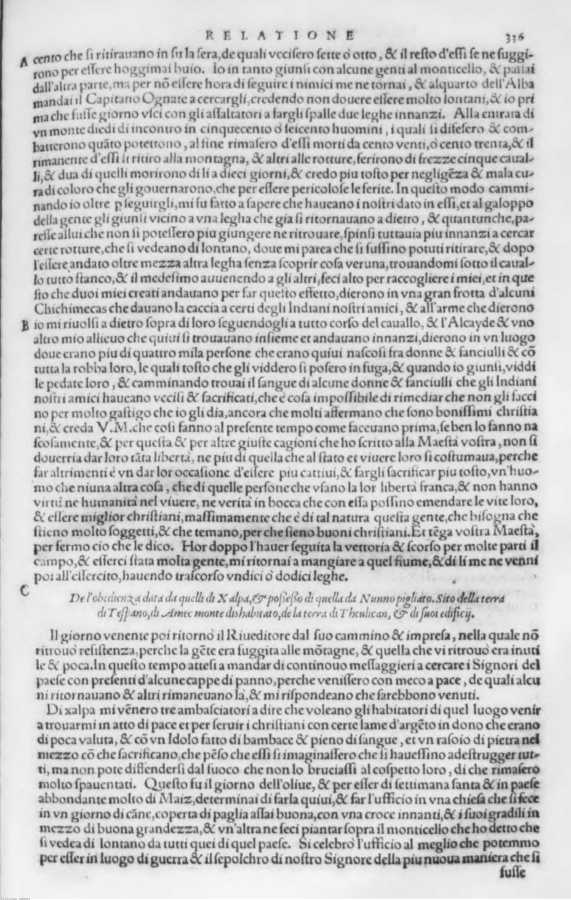 RELATIONE 336
A cento che si ritirauano in su la sera, de quali vccisero sette o otto, & il resto d'essi se ne fuggi-
rono per essere hoggimai buio. Io in tanto giunsi con alcune genti al monticello, & passai
dall'altra parte, ma per nō essere hora di seguire i nimici me ne tornai, & al quarto dell'Alba
mandai il Capitano Ognate a cercargli, credendo non douere essere molto lontani, & io pri
ma che fusse giorno vsci con gli assaltatori a fargli spalle due leghe innanzi. Alla entrata di
vn monte diedi di incontro in cinquecento o seicento huomini, i quali si difesero & com-
batterono quāto potettono, al fine rimasero d'essi morti da cento venti, o cento trenta, & il
rimanente d'essi si ritiro alla montagna, & altri alle rotture, ferirono di frezze cinque caual-
li, & dua di quelli morirono di li a dieci giorni, & credo piu tosto per negligēza & mala cu-
ra di coloro che gli gouernarono, che per essere pericolose le ferite. In questo modo cammi-
nando io oltre p seguirgli, mi fu fatto a sapere che haueano i nostri dato in essi, et al galoppo
della gente gli giunsi vicino a vna legha che gia si ritornauano a dietro, & quantunche, pa-
resse allui che non si potessero piu giungere ne ritrouare, spinsi tuttauia piu innanzi a cercar
certe rotture, che si vedeano di lontano, doue mi parea che si fussino potuti ritirare, & dopo
l'essere andato oltre mezza altra legha senza scoprir cosa veruna, trouandomi sotto il caual-
lo tutto stanco, & il medesimo auuenendo a gli altri, feci alto per raccogliere i miei, et in que
sto che duoi miei creati andauano per far questo effetto, dierono in vna gran frotta d'alcuni
Chichimecas che dauano la caccia a certi degli Indiani nostri amici, & all'arme che dierono
B io mi riuolsi a dietro sopra di loro seguendogli a tutto corso del cauallo, & l'Alcayde & vno
altro mio allieuo che quiui si trouauano insieme et andauano innanzi, dierono in vn luogo
doue erano piu di quattro mila persone che erano quiui nascosi fra donne & fanciulli & cō
tutta la robba loro, le quali tosto che gli viddero si posero in fuga, & quando io giunsi, viddi
le pedate loro, & camminando trouai il sangue di alcune donne & fanciulli che gli Indiani
nostri amici haueano vccisi & sacrificati, che è cosa impossibile di rimediar che non gli facci
no per molto gastigo che io gli dia, ancora che molti affermano che sono bonissimi christia
ni, & creda V. M. che cosi fanno al presente tempo come faceuano prima, se ben lo fanno na
scosamente, & per questa & per altre giuste cagioni che ho scritto alla Maestà vostra, non si
douerria dar loro tāta libertà, ne piu di quella che al stato et viuere loro si costumaua, perche
far altrimenti è vn dar lor occasione d'essere piu cattiui, & fargli sacrificar piu tosto, vn'huo-
mo che niuna altra cosa, che di quelle persone che vsano la lor libertà franca, & non hanno
virtu ne humanita nel viuere, ne verità in bocca che con essa possino emendare le vite loro,
& essere miglior christiani, massimamente che è di tal natura questa gente, che bisogna che
stieno molto soggetti, & che temano, per che sieno buoni christiani. Et tēga vostra Maestà,
per fermo cio che le dico. Hor doppo l'hauer seguita la vettoria & scorso per molte parti il
campo, & esserci stata molta gente, mi ritornai a mangiare a quel fiume, & di li me ne venni
poi all'essercito, hauendo trascorso vndici o dodici leghe.
C De l'obedienza data da quelli di Xalpa, & possesso di quella da Nunno pigliato. Sito della terra
di Tespano, di Amec monte dishabitato, de la terra di Theulican, & di suoi edificij.
Il giorno venente poi ritornò il Riueditore dal suo cammino & impresa, nella quale nō
ritrouò resistenza, perche la gēte era fuggita alle mōtagne, & quella che vi ritrouò era inuti
le & poca. In questo tempo attesi a mandar di continouo messaggieri a cercare i Signori del
paese con presenti d'alcune cappe di panno, perche venissero con meco a pace, de quali alcu
ni ritornauano & altri rimaneuano la, & mi rispondeano che sarebbono venuti.
Di xalpa mi vēnero tre ambasciatori a dire che voleano gli habitatori di quel luogo venir
a trouarmi in atto di pace et per seruir i christiani con certe lame d'argēto in dono che erano
di poca valuta, & cō vn Idolo fatto di bambace & pieno di sangue, et vn rasoio di pietra nel
mezzo cō che sacrificano, che pēso che essi si imaginassero che si hauessino a destrugger tut-
ti, ma non pote diffendersi dal fuoco che non lo bruciassi al cospetto loro, di che rimasero
molto spauentati. Questo fu il giorno dell'oliue, & per esser di settimana santa & in paese
abbondante molto di Maiz, determinai di farla quiui, & far l'ufficio in vna chiesa che si fece
in vn giorno di cāne, coperta di paglia assai buona, con vna croce innanti, & i suoi gradili in
mezzo di buona grandezza, & vn'altra ne feci piantar sopra il monticello che ho detto che
si vedea di lontano da tutti quei di quel paese. Si celebrò l'ufficio al meglio che potemmo
per esser in luogo di guerra & il sepolchro di nostro Signore della piu nuoua maniera che si
fusse